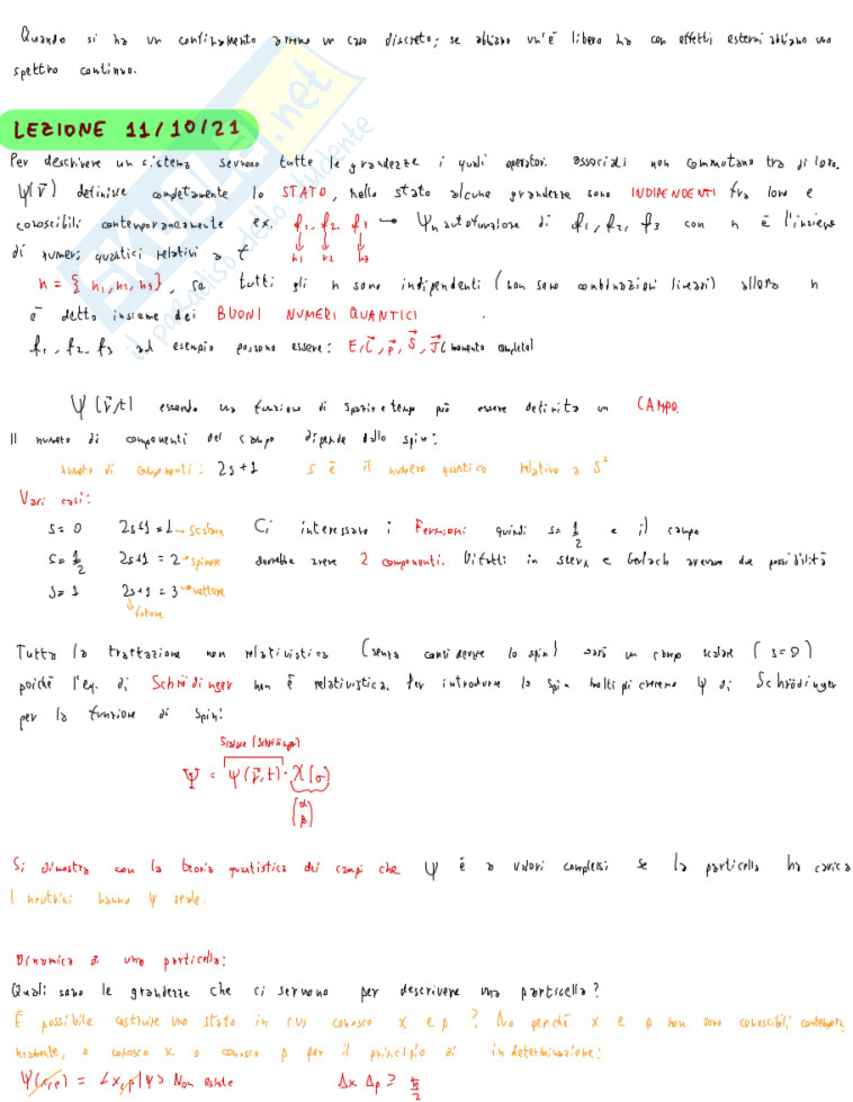 Quando si ha un confinamento avremo un caso discreto; se abbiamo un' e⁻ libero ha con effetti esterni abbiamo uno
spettro continuo.
LEZIONE 11/10/21
Per descrivere un sistema servono tutte le grandezze i quali operatori associati non commutano tra di loro.
ψ(r⃗) definisce completamente lo STATO, nello stato alcune grandezze sono INDIPENDENTI fra loro e
conoscibili contemporaneamente ex. f1, f2, f3 → ψn autofunzione di f1, f2, f3 con n è l'insieme
di numeri quantici relativi a f
n1 n2 n3
n = { n1, n2, n3}, se tutti gli n sono indipendenti (non sono combinazioni lineari) allora n
è detto insieme dei BUONI NUMERI QUANTICI
f1, f2, f3 ad esempio possono essere: E, L⃗, p⃗, S⃗, J⃗ (momento completo)
ψ(r⃗,t) essendo una funzione di spazio e tempo può essere definita un CAMPO.
Il numero di componenti del campo dipende dallo spin:
numero di componenti: 2s+1 s è il numero quantico relativo a S²
Vari casi:
s= 0 2s+1 = 1 → scalare Ci interessano i Fermioni quindi s= 1/2 e il campo
s= 1/2 2s+1 = 2 → spinore dovrebbe avere 2 componenti. Difatti in Stern e Gerlach avevamo due possibilità
s= 1 2s+1 = 3 → vettore
↓ fotone
Tutta la trattazione non relativistica (senza considerare lo spin) sarà un campo scalare (s=0)
poiché l'eq. di Schrödinger non è relativistica. Per introdurre lo spin moltiplicheremo ψ di Schrödinger
per la funzione di spin:
Scalare (Schrödinger)
Ψ = ψ(r⃗,t) · χ(σ)
(α β)
Si dimostra con la teoria quantistica dei campi che ψ è a valori complessi se la particella ha carica
I neutrini hanno ψ reale.
Dinamica di una particella:
Quali sono le grandezze che ci servono per descrivere una particella?
È possibile costruire uno stato in cui conosco x e p? No perché x e p non sono conoscibili contempora
neamente, o conosco x o conosco p per il principio di indeterminazione:
ψ(x,p) = <x,p|ψ> Non esiste Δx Δp ≥ ħ/2
SKUOLA.net
il paradiso dello studente